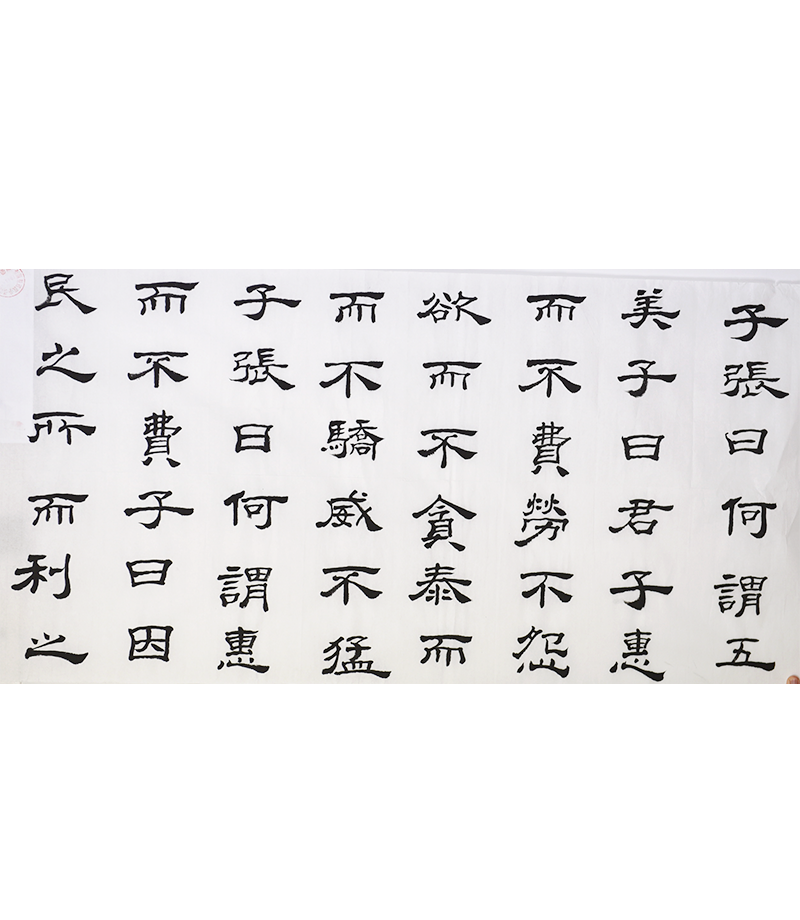 子張曰何謂五
美子曰君子惠
而不費勞不怨
欲而不貪泰而
而不驕威不猛
子張曰何謂惠
而不費子曰因
民之所而利之